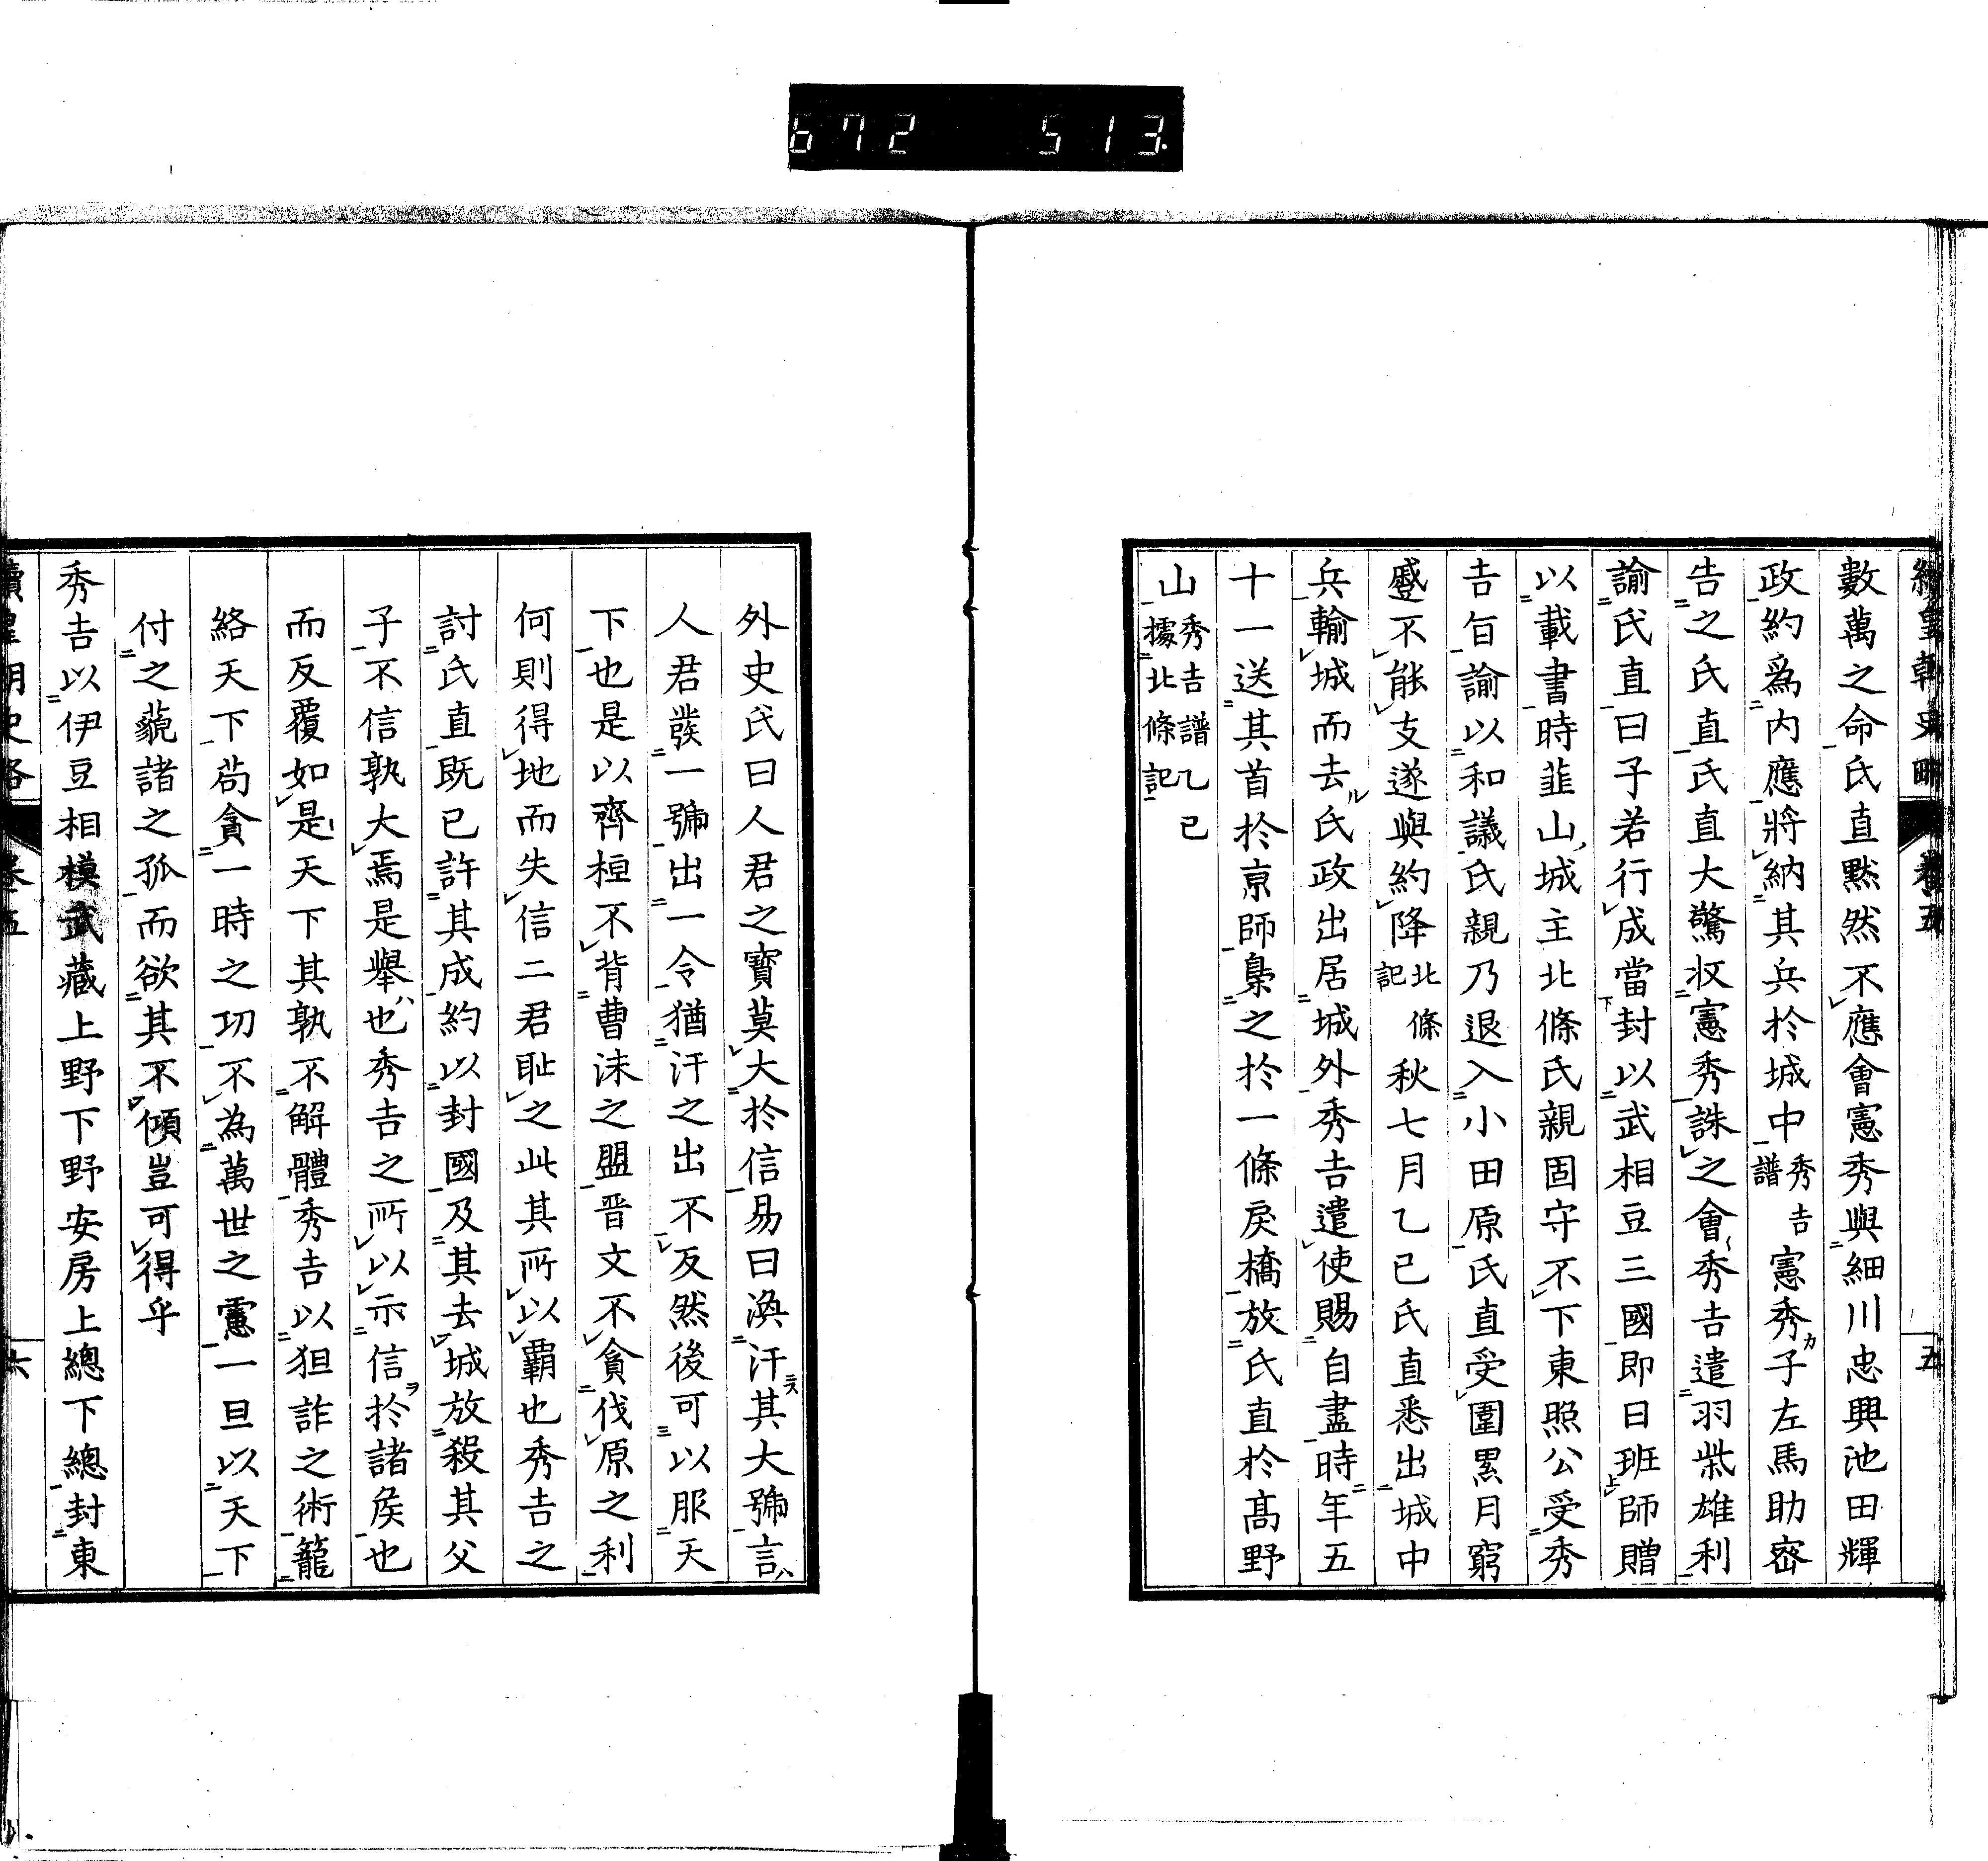 672 513
續皇朝史略 卷五 五
數萬之命氏直默然不應會憲秀與細川忠興池田輝
政約爲内應將納其兵於城中秀吉譜憲秀子左馬助密
告之氏直氏直大驚収憲秀誅之會秀吉遣羽柴雄利
諭氏直曰子若行成當封以武相豆三國即日班師贈
以載書時韮山城主北條氏親固守不下東照公受秀
吉旨諭以和議氏親乃退入小田原氏直受圍累月窮
蹙不能支遂與約降北條記秋七月乙巳氏直悉出城中
兵輸城而去氏政出居城外秀吉遣使賜自盡時年五
十一送其首於京師梟之於一條戻橋放氏直於髙野
山秀吉譜乙巳據北條記
外史氏曰人君之寶莫大於信易曰渙汗其大號言
人君發一號出一令猶汗之出不反然後可以服天
下也是以齊桓不背曹沫之盟晋文不貪伐原之利
何則得地而失信二君恥之此其所以霸也秀吉之
討氏直既已許其成約以封國及其去城放殺其父
子不信孰大焉是舉也秀吉之所以示信於諸侯也
而反覆如是天下其孰不解體秀吉以狙詐之術籠
絡天下苟貪一時之功不為萬世之慮一旦以天下
付之藐諸之孤而欲其不傾豈可得乎
秀吉以伊豆相模武藏上野下野安房上總下總封東
續皇朝史略 卷五 六